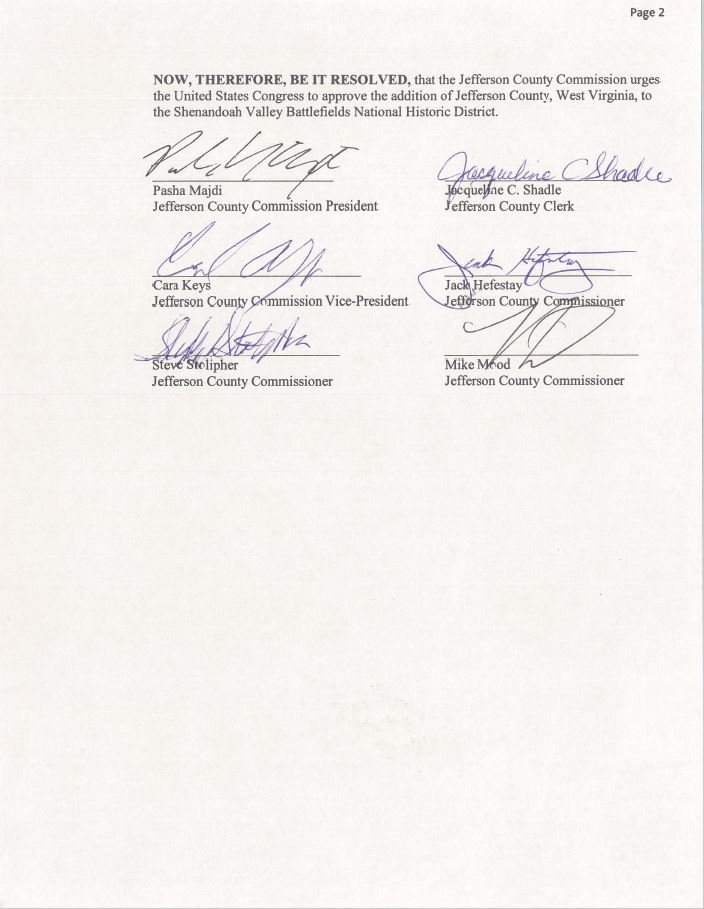 Page 2
NOW, THEREFORE, BE IT RESOLVED, that the Jefferson County Commission urges
the United States Congress to approve the addition of Jefferson County, West Virginia, to
the Shenandoah Valley Battlefields National Historic District.
Jacqueline C Shadle
Pasha Majdi
Jacqueline C. Shadle
Jefferson County Commission President
Jefferson County Clerk
Jack Hefestay
Cara Keys
Jack Hefestay
Jefferson County Commission Vice-President
Jefferson County Commissioner
Steve Stolipher
Mike Mood
Jefferson County Commissioner
Jefferson County Commissioner